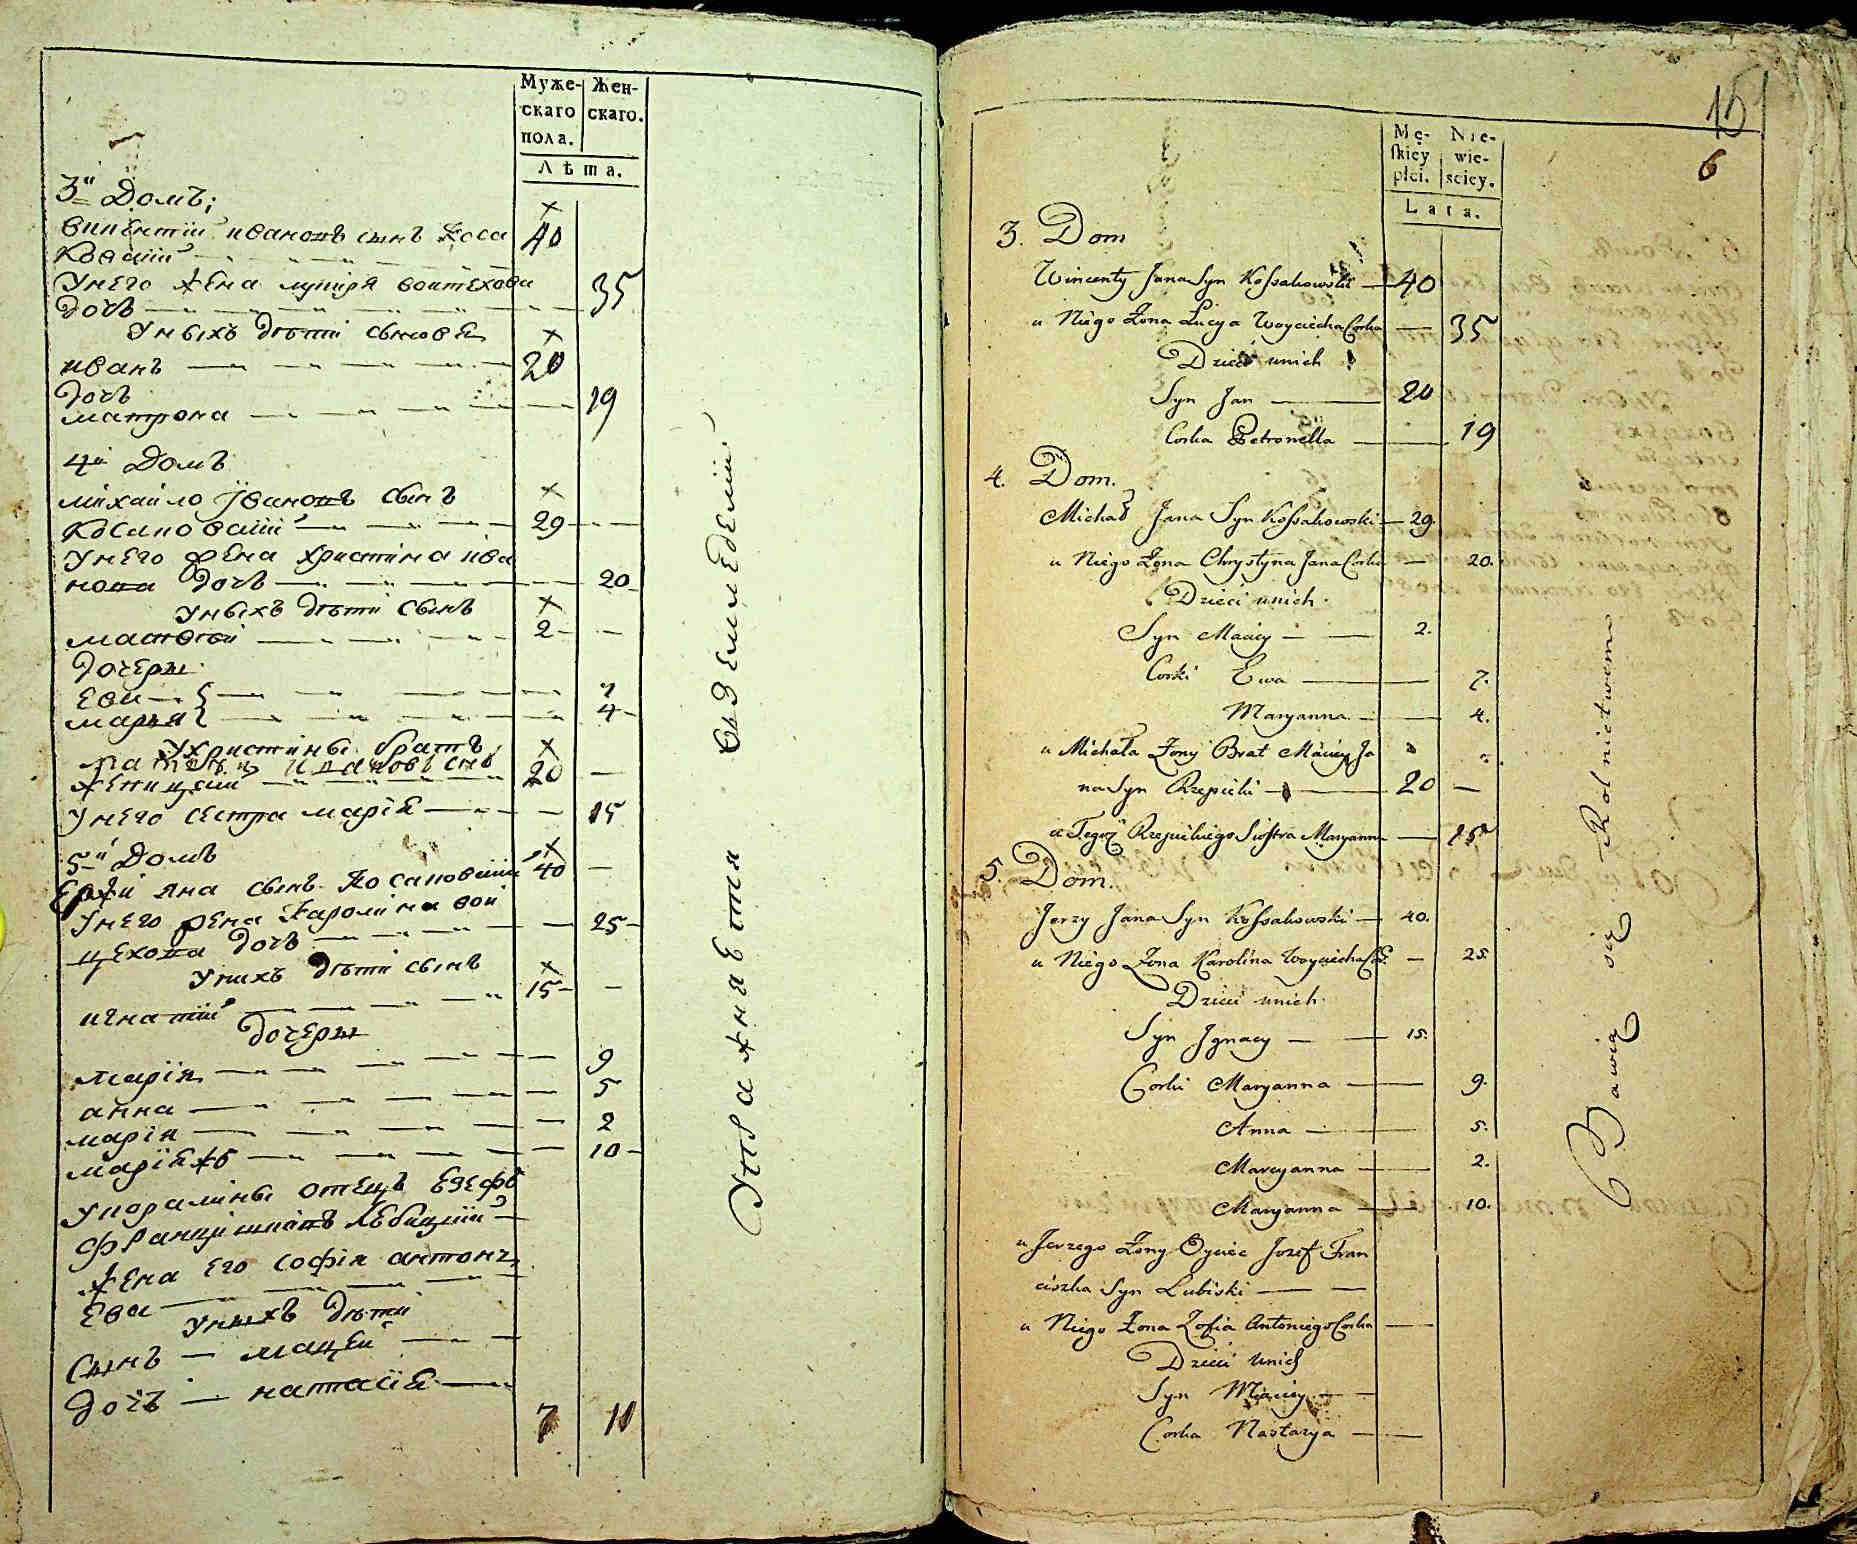 Муже-
скаго
пола.
Жен-
скаго.
Лѣта.
3й Домъ;
винентий ивановъ сынъ Коса
ковский 40
У него жена луция воитехова
дочь 35
У ныхъ дѣтий сыновя
иванъ 20
дочь
матрона 19
4й Домъ
михаило Ивановъ сынъ
косаповский 29
У него жена христина ива
нова дочь 20
У ныхъ дѣтий сынъ
матвей 2
дочеры
ева 7
марыя 4
У христины братъ
ивановъ сынъ
20
У него сестра мария 15
5й Домъ
Ержий яна сынъ Косаповский 40
У него жена Каролина вои
цехова дочь 25
У нихъ дѣтий сынъ
игнатий 15
дочеры
мария 9
анна 5
мария 2
мария 10
отецъ Езефъ
жена его софия антон
ева
У ныхъ дѣтий
Сынъ — мацей
дочъ — натасия
7 11
Упражнаются въ земледелии
15
6
Mę-
skiey
płci.
Nie-
wie-
sciey.
Lata.
3. Dom
Wincenty Jana Syn Kossakowski — 40
u Niego Żona Lucya Woyciecha Corka — 35
Dzieci u nich
Syn Jan — 20
Corka Petronella — 19
4. Dom.
Michał Jana Syn Kossakowski — 29.
u Niego Żona Chrystyna Jana Corka — 20.
Dzieci u nich.
Syn Maciey — 2.
Corki Ewa — 7.
Maryanna — 4.
u Michała Żony Brat Maciey Ja
na Syn Rzepicki — 20 —
u Tegoż Rzepickiego Siostra Maryanna — 15
5. Dom.
Jerzy Jana Syn Kossakowski — 40.
u Niego Żona Karolina Woyciecha Cor. — 25.
Dzieci u nich.
Syn Jgnacy — 15.
Corki Maryanna — 9.
Anna — 5.
Maryanna — 2.
Maryanna — 10.
u Jerzego Żony Oyciec Jozef Fran
ciszka Syn Lubiski —
u Niego Żona Zofia Antoniego Corka —
Dzieci u nich
Syn Maciey —
Corka Nastazya —
Bawią się Rolnictwem